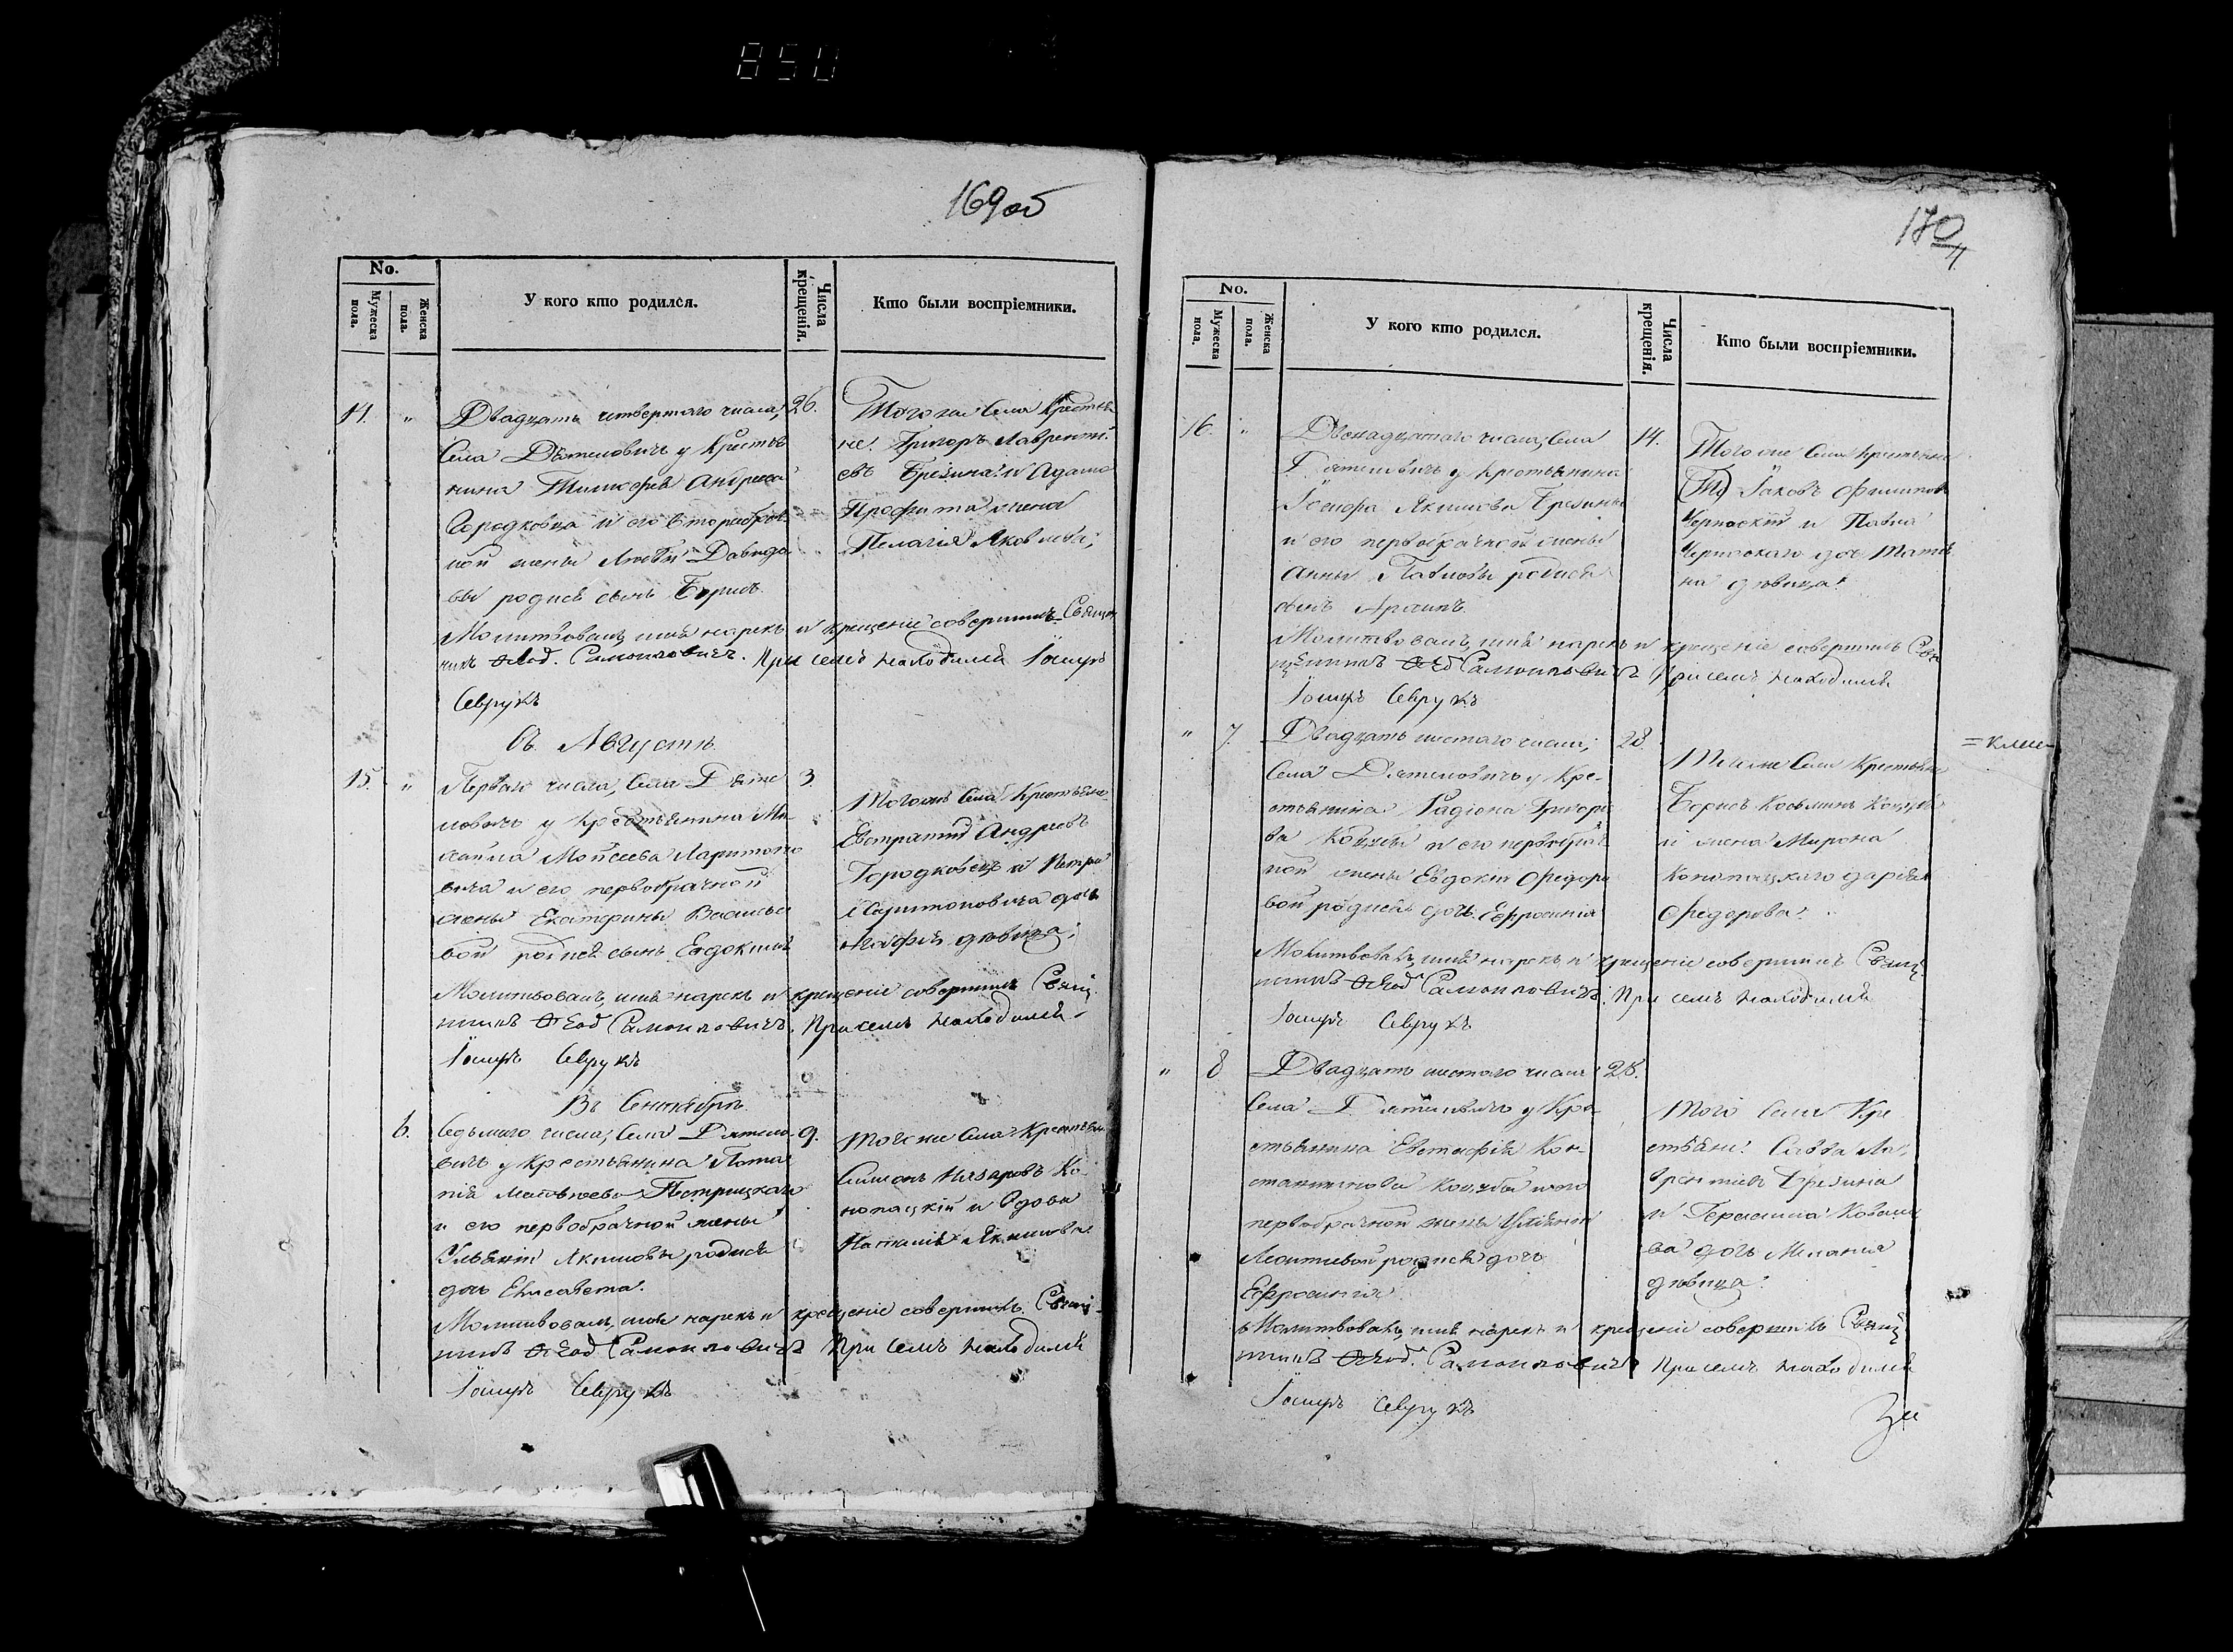 850
169 об
No.
Мужеска пола.
Женска пола.
У кого кто родился.
Числа крещенія.
Кто были воспріемники.
14. " Двадцать четвертаго числа, 26.
Села Дѣтеловичъ у Крестья
нина Тимофея Андреева
Городковца и его второбрач
ной жены Любви Давидо
вы родися сынъ Борисъ.
Тогоже Села Крестья
не: Григоръ Лаврентi
евъ Брезина и Адама
жена
Пелагія Яковлева;
Молитвовалъ, имя нарекъ и крещеніе совершилъ Священ
никъ Ѳеод. Самойловичъ. При семъ находился Іосифъ
Севрукъ
Въ Августѣ.
15. " Перваго числа, Села Дяте 3.
ловичъ у Крестьянина Ми
хаила Мойсеева Харитоно
вича и его первобрачной
жены Екатерины Василье
вой родися сынъ Евдокимъ
Тогожъ Села Крестьяне
Евстратій Андреевъ
Городковецъ и Петра
Харитоновича дочь
дѣвица;
Молитвовалъ, имя нарекъ и крещеніе совершилъ Свящ.
нникъ Ѳеод Самойловичъ. При семъ находился
Іосифъ Севрукъ
Въ Сентябрѣ.
6. Седьмаго числа, Села Дятело 9.
вичъ у Крестьянина Пота
пія Матвѣева Петрицкаго
и его первобрачной жены
Ульяніи Якимовы родися
дочь Елисавета.
Тогоже Села Крестьян
Симеонъ Назаровъ Ко
нопацкій и вдова
Наталія Якимова.
Молитвовалъ, имя нарекъ и крещеніе совершилъ Свящ
нникъ Ѳеод Самойловичъ При семъ находился
Іосифъ Севрукъ
170
No.
Мужеска пола.
Женска пола.
У кого кто родился.
Числа крещенія.
Кто были воспріемники.
16. " Двенадцатаго числа, Села 14.
Дятеловичъ у Крестьянина
Іосифа Якимова Брезины
и его первобрачной жены
Анны Павловы родися
сынъ
Тогоже Села Крестьяне
Іаковъ Филипов
Черноскій и Павла
Чернскаго дочь Татья
на дѣвица.
Молитвовалъ, имя нарекъ и крещеніе совершилъ Свя
щенникъ Ѳеод Самойловичъ При семъ находился
Іосифъ Севрукъ
" 7. Двадцать шестаго числа, 28.
Села Дятеловичъ у Кре-
стьянина Радіона Григорь
ва Коцубы и его первобрач
ной жены Евдокіи Ѳедоро
вой родися дочь Ефросинія
Тогоже Села Крестьяне
Борисъ Косьминъ Коцуба
и жена Мирона
Конопацкаго Дарія
Ѳедорова.
Молитвовалъ, имя нарекъ и крещеніе совершилъ Свящ
нникъ Ѳеод Самойловичъ. При семъ находился
Іосифъ Севрукъ
" 8 Двадцать шестаго числа 28.
Села Дятеловичъ у Кре
стьянина Евстафія Кон-
стантинова Коцубы и его
первобрачной жены Ульяніи
Леонтіевой родися дочь
Ефросинія
Того Села Кре
стьяне: Савва Ла
врентіевъ Брезина
и Герасима Ковале
ва дочь Меланія
дѣвица.
Молитвовалъ, имя нарекъ и крещеніе совершилъ Свящ
нникъ Ѳеод. Самойловичъ При семъ находился
Іосифъ Севрукъ